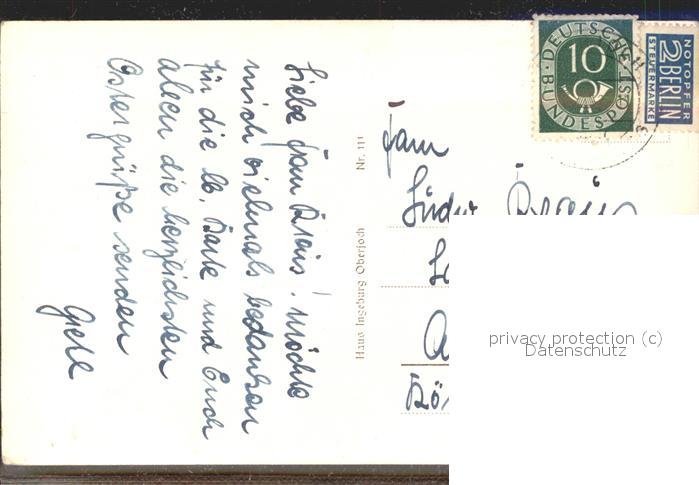 Liebe Fam Kreis! Möchte
mich vielmals bedanken
für die lb. Karte und Euch
allen die herzlichsten
Ostergrüße senden
Gretl
Haus Ingeburg Oberjoch Nr. 111
Fam
DEUTSCHE
BUNDESPOST
10
NOTOPFER
2 BERLIN
STEUERMARKE
privacy protection (c)
Datenschutz